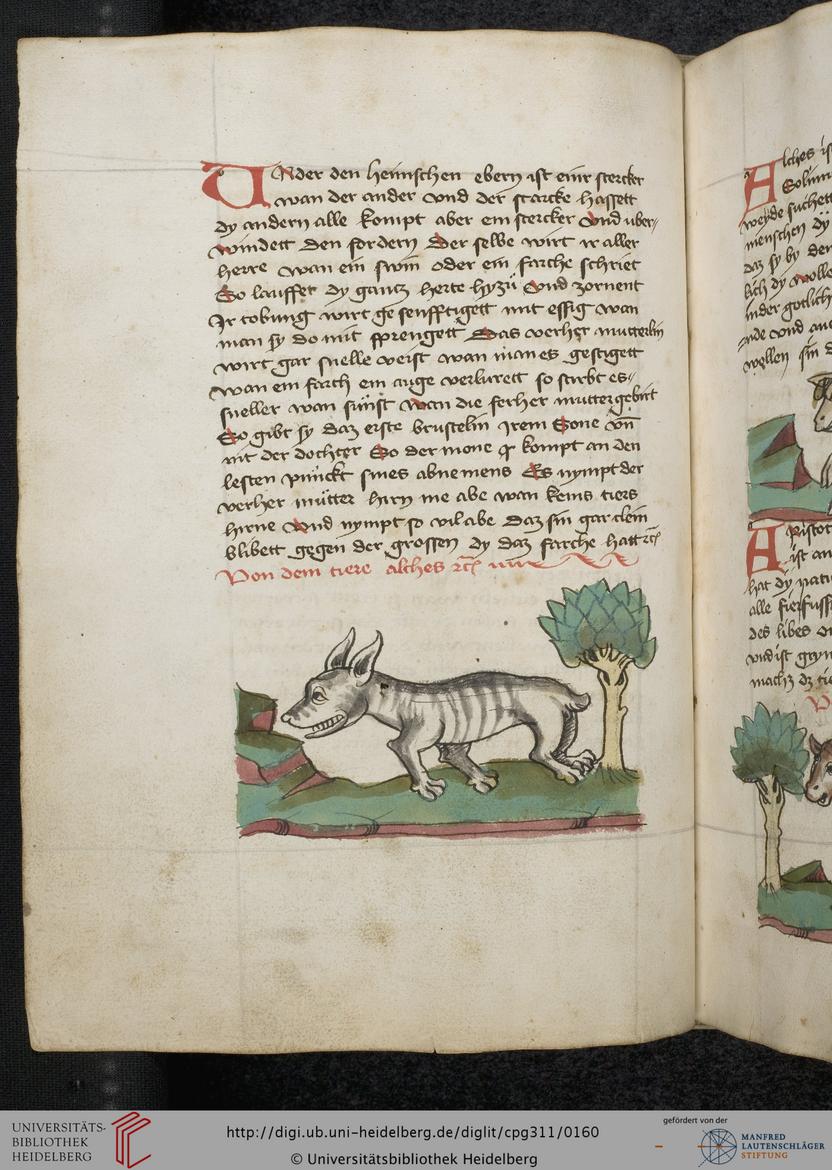 Under den heimschen ebern ist einr stercker
wan der ander vnd der starcke hassett
dy andern alle kompt aber ein stercker vnd uber
windett den fordern Der selbe wirt ir aller
herre wan ein swin oder ein farche schriet
So lauffet dy gantz herte hyzü vnd zornent
Ir tobung wirt gesenfftigett mit essig wan
man sy do mit sprengett Das verher mutterlin
wirt gar snelle veist wan man es gestigett
wan ein farch ein auge verlurett so stirbt es
sneller wan sunst wan die ferher mutter gebirt
So gibt sy daz erste brustelin irem Sone vn̄
nit der dochter So der mone kompt an den
lesten punckt sines abnemens Es nympt der
verher mütter hirn me abe wan keins tiers
hirne vnd nympt so vil abe daz sin gar clein
blibett gegen der grossen dy daz farche hatt
Von dem tiere alches
lches
Solin
weyde suchett
menschen dy
daz sy by den
inder gotlich
wollen sin
Aristot
ist an
hat dy natu
alle fierfuss
des libes
vnd ist grym
UNIVERSITÄTS-
BIBLIOTHEK
HEIDELBERG
http://digi.ub.uni-heidelberg.de/diglit/cpg311/0160
© Universitätsbibliothek Heidelberg
gefördert von der
MANFRED
LAUTENSCHLÄGER
STIFTUNG